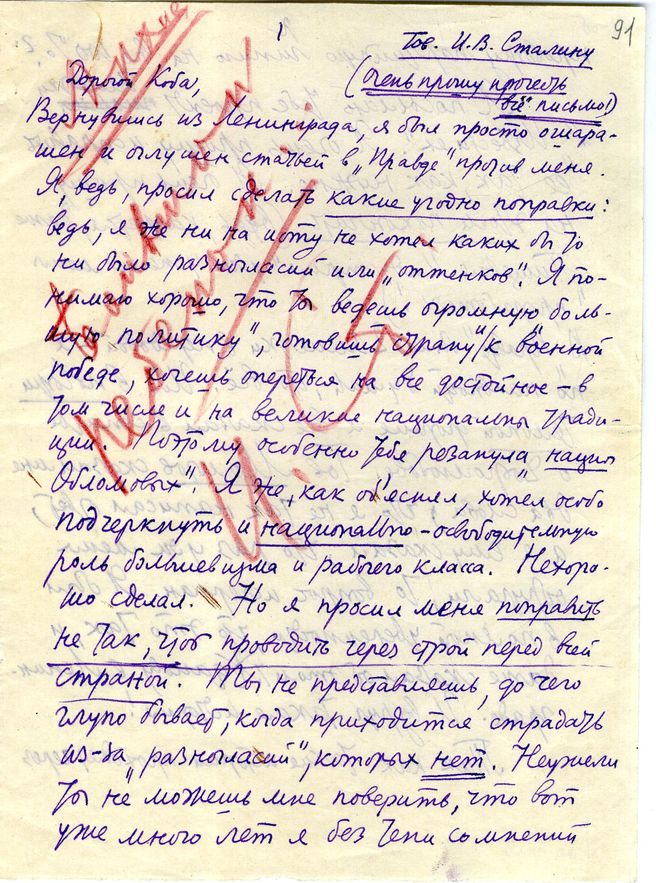 1
91
Тов. И.В. Сталину
(очень прошу прочесть
всё письмо!)
Дорогой Коба,
Вернувшись из Ленинграда, я был просто ошара-
шен и оглушен статьей в „Правде" против меня.
Я, ведь, просил сделать какие угодно поправки:
ведь, я же ни на иоту не хотел каких бы то
ни было разногласий или „оттенков". Я по-
нимаю хорошо, что ты ведешь огромную боль-
шую политику", готовишь страну к военной
победе, хочешь опереться на все достойное – в
том числе и на великие национальны тради-
ции. Поэтому особенно тебя резанула „нация
Обломовых". Я же, как об'яснял, хотел особо
подчеркнуть и национально-освободительную
роль большевизма и рабочего класса. Нехоро-
шо сделал. Но я просил меня поправить
не так, чтоб проводить через строй перед всей
страной. Ты не представляешь, до чего
глупо бывает, когда приходится страдать
из-за „разногласий", которых нет. Неужели
ты не можешь мне поверить, что вот
уже много лет я без тени сомнений